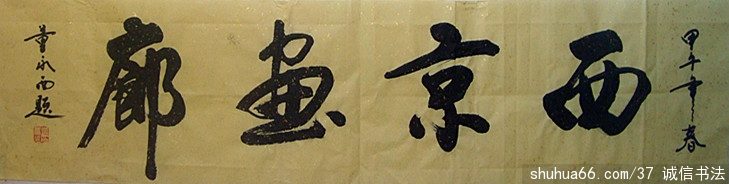 甲午年春
西京画廊
董永西题
shuhua66.com/37 诚信书法